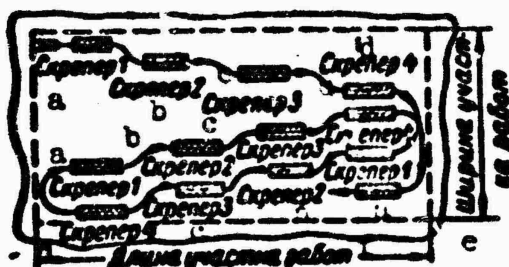 Скрепер 1
Скрепер 2
Скрепер 3
Скрепер 4
d
a
b
c
b
c
a
Скрепер 1
Скрепер 2
Скрепер 3
Скрепер 4
Скрепер 1
Скрепер 2
Скрепер 3
Скрепер 4
Длина участка работ
Ширина участ-
ка работ
e